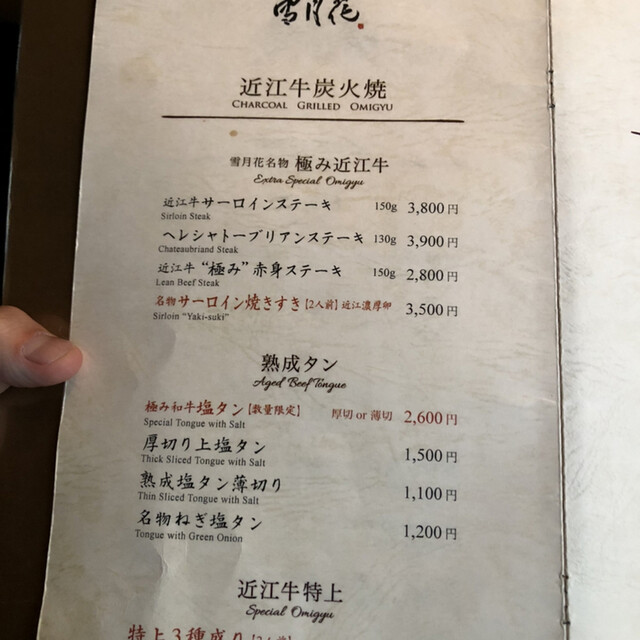 雪月花
近江牛炭火焼
CHARCOAL GRILLED OMIGYU
雪月花名物 極み近江牛
Extra Special Omigyu
近江牛サーロインステーキ 150g 3,800円
Sirloin Steak
ヘレシャトーブリアンステーキ 130g 3,900円
Chateaubriand Steak
近江牛“極み”赤身ステーキ 150g 2,800円
Lean Beef Steak
名物サーロイン焼きすき【2人前】近江濃厚卵 3,500円
Sirloin "Yaki-suki"
熟成タン
Aged Beef Tongue
極み和牛塩タン【数量限定】 厚切 or 薄切 2,600円
Special Tongue with Salt
厚切り上塩タン 1,500円
Thick Sliced Tongue with Salt
熟成塩タン薄切り 1,100円
Thin Sliced Tongue with Salt
名物ねぎ塩タン 1,200円
Tongue with Green Onion
近江牛特上
Special Omigyu
特上3種盛り